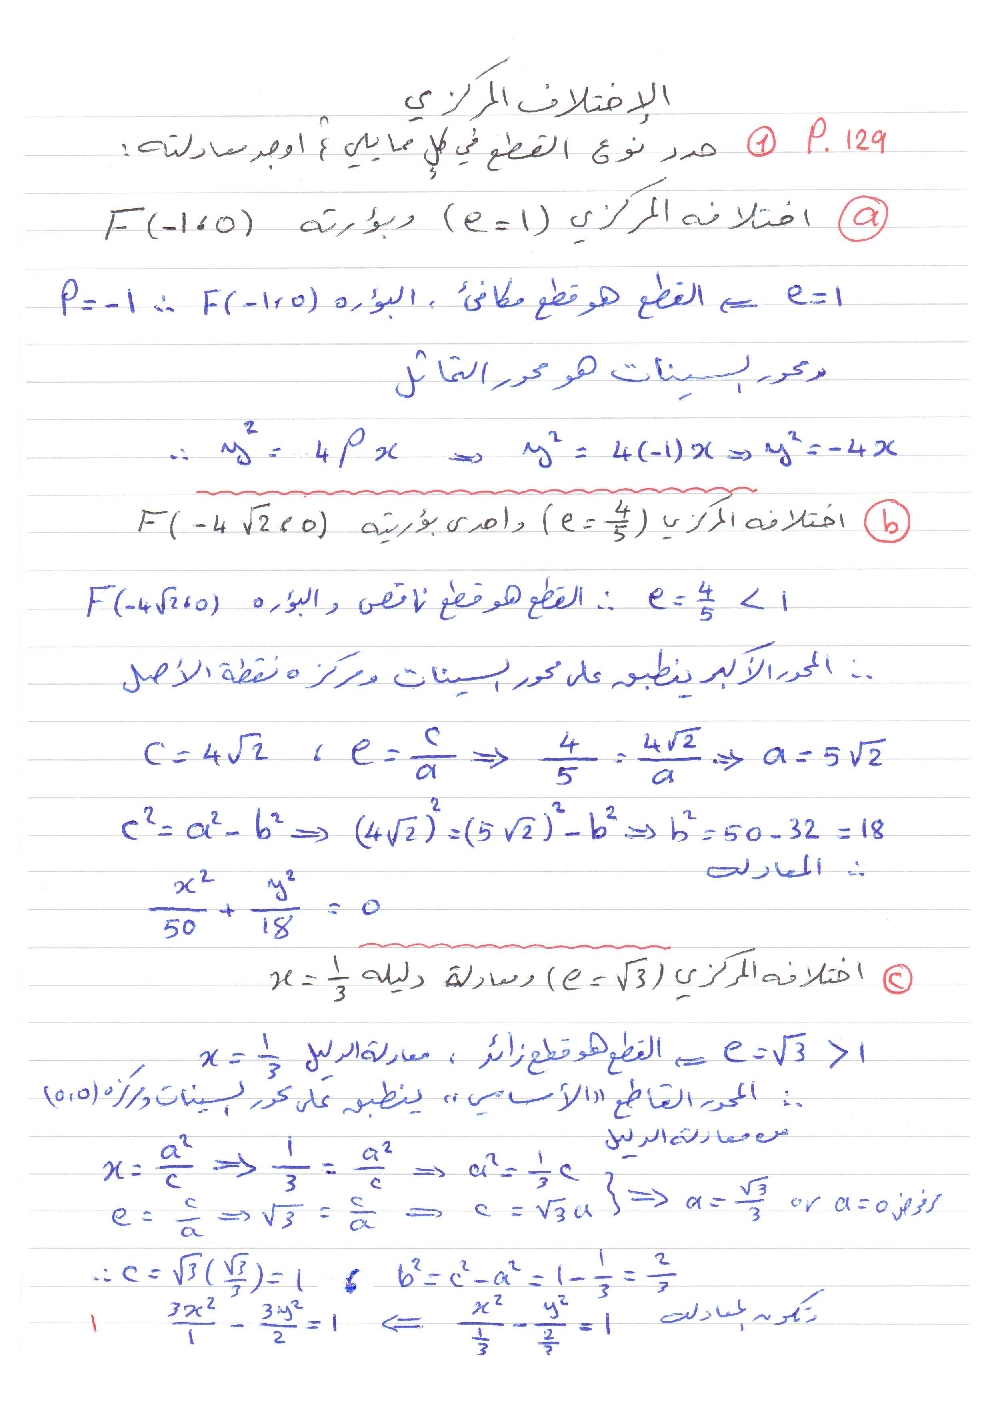 الإختلاف المركزي
P. 129 ① حدد نوع القطع في كل مما يلي ثم اوجد معادلته :
ⓐ اختلافه المركزي (e = 1) وبؤرته F(-1، 0)
e = 1 ⇐ القطع هو قطع مكافئ ، البؤره F(-1، 0) ∴ P = -1
ومحور السينات هو محور التماثل
∴ y² = 4Px ⇒ y² = 4(-1)x ⇒ y² = -4x
ⓑ اختلافه المركزي (e = 4/5) واحدى بؤرتيه F(-4√2، 0)
e = 4/5 < 1 ∴ القطع هو قطع ناقص والبؤره F(-4√2، 0)
∴ المحور الأكبر ينطبق على محور السينات ومركزه نقطة الأصل
C = 4√2 ، e = c/a ⇒ 4/5 = 4√2/a ⇒ a = 5√2
c² = a² - b² ⇒ (4√2)² = (5√2)² - b² ⇒ b² = 50 - 32 = 18
∴ المعادلة
x²/50 + y²/18 = 0
ⓒ اختلافه المركزي (e = √3) ومعادلة دليله x = 1/3
e = √3 > 1 ⇐ القطع هو قطع زائد ، معادلة الدليل x = 1/3
∴ المحور القاطع "الأساسي" ينطبق على محور السينات ومركزه (0،0)
من معادلة الدليل
x = a²/c ⇒ 1/3 = a²/c ⇒ a² = 1/3 c
e = c/a ⇒ √3 = c/a ⇒ c = √3a } ⇒ a = √3/3 or a = 0 مرفوض
∴ c = √3(√3/3) = 1 ، b² = c² - a² = 1 - 1/3 = 2/3
وتكون المعادلة x²/(1/3) - y²/(2/3) = 1 ⇐ 3x²/1 - 3y²/2 = 1
1